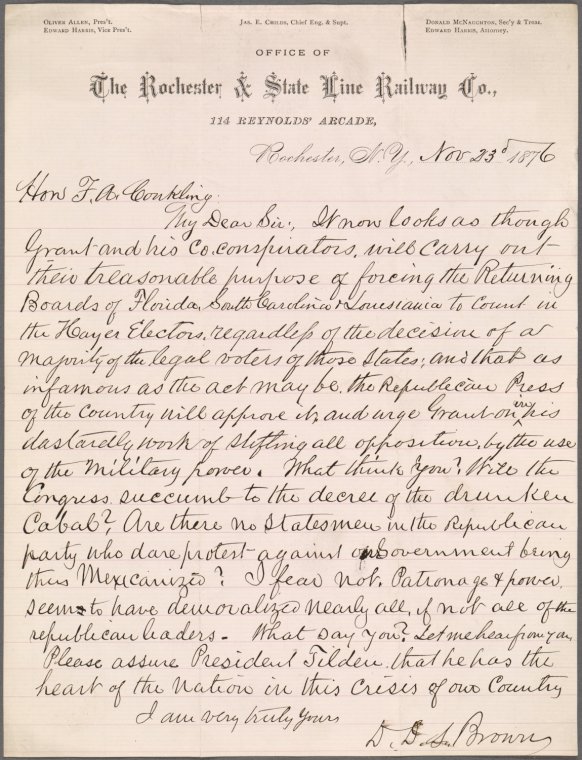 OLIVER ALLEN, Pres't.
EDWARD HARRIS, Vice Pres't.
JAS. E. CHILDS, Chief Eng. & Supt.
DONALD McNAUGHTON, Sec'y & Treas.
EDWARD HARRIS, Attorney.
OFFICE OF
The Rochester & State Line Railway Co.,
114 REYNOLDS' ARCADE,
Rochester, N.Y., Nov 23d 1876
Hon F. A. Conkling
My Dear Sir:, It now looks as though
Grant and his Co.conspirators, will carry out
their treasonable purpose of forcing the Returning
Boards of Florida, South Carolina & Louisiania to count in
the Hayes Electors, regardless of the decision of a
majority of the legal voters of those States; and that as
infamous as the act may be, the Republican Press
of the Country will approve it, and urge Grant on in his
dastardly work of stifling all opposition, by the use
of the Military power. What think you? Will the
Congress succumb to the decree of the drunken
Cabal? Are there no Statesmen in the Republican
party who dare protest against our Government being
thus Mexicanized? I fear not. Patronage & power
seems to have demoralized nearly all, if not all of the
republican leaders - What say you? Let me hear from you
Please assure President Tilden, that he has the
heart of the Nation in this Crisis of our Country
I am very truly Yours
D. D. S. Brown